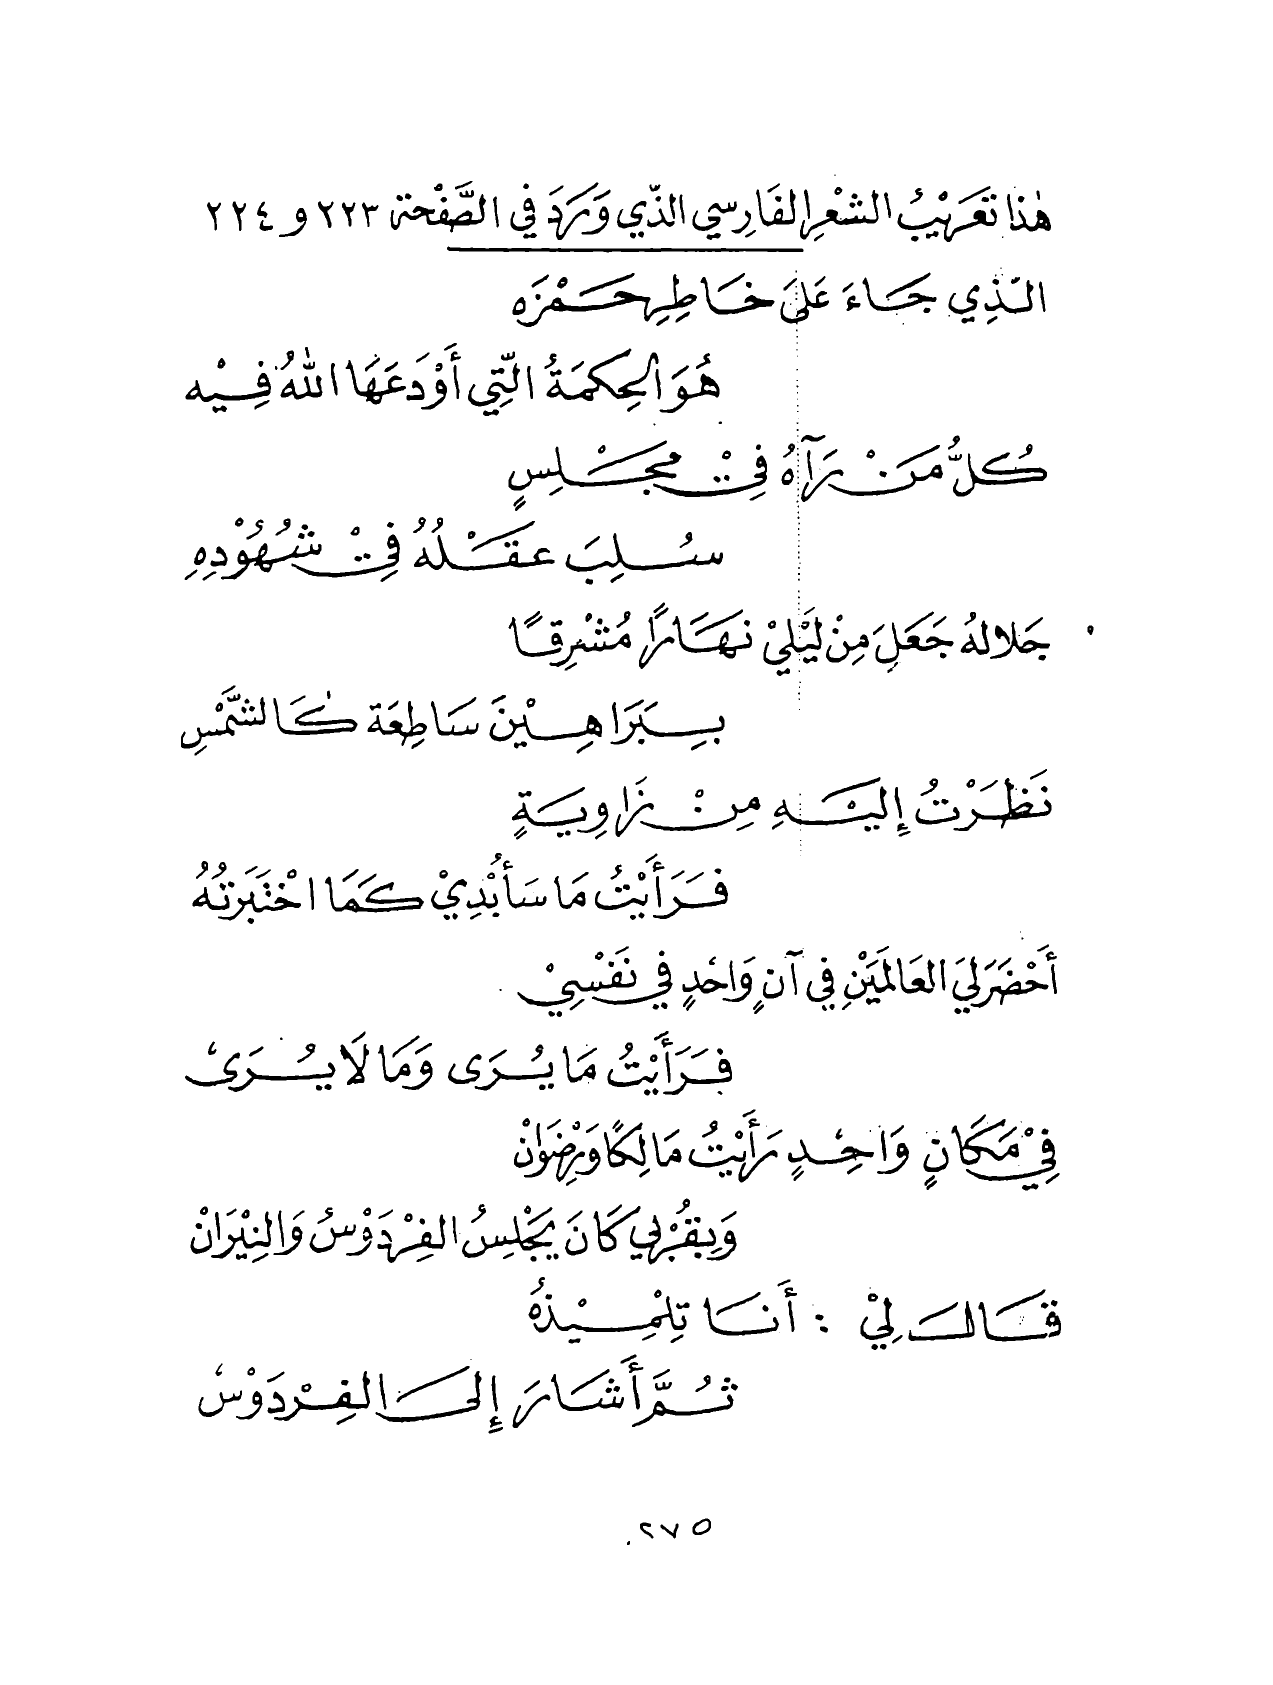 هٰذا تَعَرِيْبُ الشعْرِ الفَارِسي الذّي وَرَدَ في الصَّفْحة ٢٢٣ و ٢٢٤
الذّي جَاءَ عَلىَ خَاطِرِ حَمْزَه
هُوَ الحِكمَةُ التِّي أَوْدَعَهَا اللهُ فِيْه
كُلُّ مَنْ رَآهُ فِيْ مجَْلِسٍ
سُلِبَ عقَْلُهُ فِيْ شُهُوْدِهِ
جَلالهُ جَعَلَ مِنْ لَيْليْ نهَارًا مُشْرِقًا
بِبَرَاهِيْنَ سَاطِعَة كَالشَّمْسِ
نَظَرْتُ إِليَْهِ مِنْ زَاوِيَةٍ
فَرَأَيْتُ مَا سَأبُْدِيْ كَمَا اخْتَبَرتهُُ
أَحْضَرَ ليَ العَالمَيَنِْ فيِ آنٍ وَاحٍدٍ فيِ نَفْسِيْ
فَرَأَيْتُ مَا يُرَى وَمَا لَا يُرَىْ
فِيْ مَكَانٍ وَاحِْدٍ رَأَيْتُ مَالِكًا وَرِضْوَانْ
وَبِقُرْبي كَانَ يَجْلِسُ الفِرْدَوْسُ وَالنِيْرَانْ
قَالَ لِيْ : أَنَا تِلْمِيْذهُُ
ثُمَّ أَشَارَ إِلىَ الفِرْدَوْسْ
٢٧٥